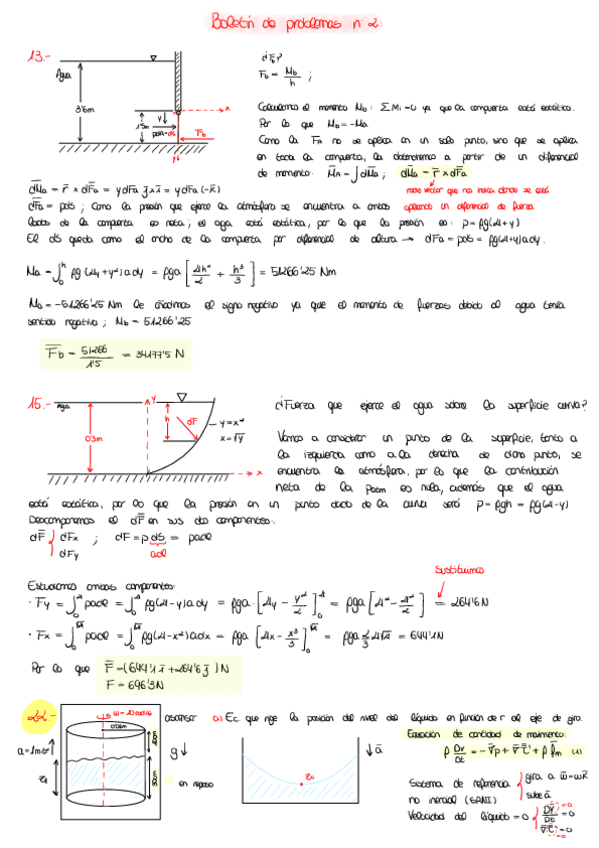 Boletín de problemas n 2:
13.-
Agua
3'6m
1'5m
y
x
Fb
¿Fb?
Fb = Mb/h ;
Calculamos el momento Mb: ΣMi=0 ya que la compuerta está estática.
Por lo que Mb=-Ma
Como la Fa no se aplica en un solo punto, sino que se aplica
en toda la compuerta, la obtendremos a partir de un diferencial
de momento: Ma = ∫dMa; dMa = r x dFa
radio vector que nos indica donde se está
aplicando un diferencial de fuerza
dMa = r x dFa = y dFa j x i = y dFa (-k)
dFa = pds ; Como la presión que ejerce la atmósfera se encuentra a ambos
lados de la compuerta es neta; el agua está estática, por lo que la presión es: p = ρg(H+y)
El ds queda como el ancho de la compuerta por diferencial de altura → dFa = pds = ρg(H+y)a dy.
= 51266'25 Nm
Ma = -51266'25 Nm le añadimos el signo negativo ya que el momento de fuerzas debido al agua tenía
sentido negativo ; Mb = 51266'25
Fb = 51266/1'5 = 34177'5 N
15.-
Agua
0'3m
h
dF
y
x
y = x²
x = √y
¿Fuerza que ejerce el agua sobre la superficie curva?
Vamos a considerar un punto de la superficie, tanto a
la izquierda como a la derecha de dicho punto, se
encuentra la atmósfera, por lo que la contribución
neta de la patm es nula, además que el agua
está estática, por lo que la presión en un punto dado de la curva será p = ρgh = ρg(H-y)
Descomponemos el dF en sus dos componentes:
dF { dFx ; dF = p ds = padl
dFy
adl
Estudiamos ambas componentes:
Sustituimos
= 264'6 N
= 644'1 N
Por lo que F = (644'1 i + 264'6 j) N
F = 696'3 N
22.-
ω = 10 rad/s
a = 1m/s²
ascensor
a) Ec que rige la posición del nivel del líquido en función de r al eje de giro.
Ecuación de cantidad de movimiento:
ρ Dv/Dt = -∇p + ∇τ + ρ fm (1)
g↓
en reposo
z0
↓a
Sistema de referencia
no inercial (SRNI)
gira a ω = ωk
sube a
Velocidad del líquido = 0
Dv/Dt = 0
∇τ = 0